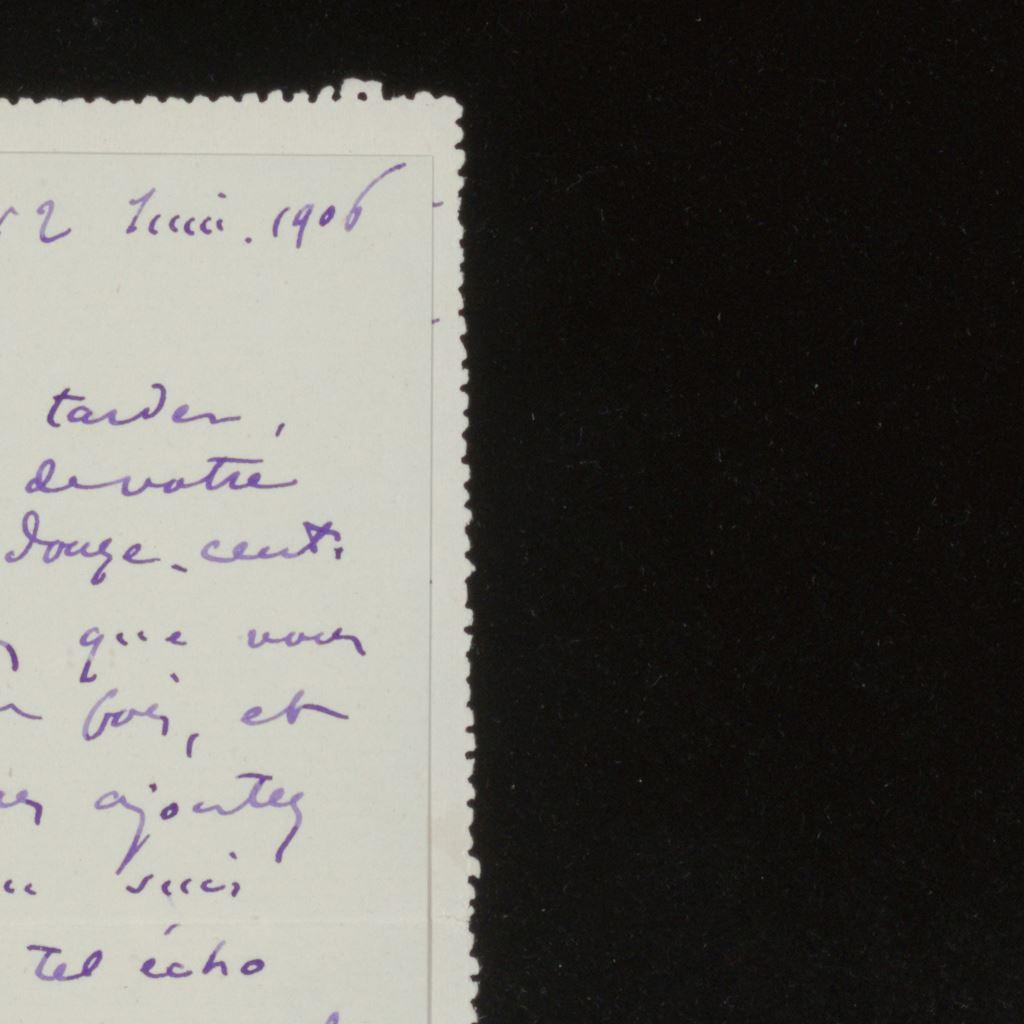 2 Juin. 1906
tarder,
de votre
douze-cent.
que vous
bois, et
ajoutez
suis
tel écho